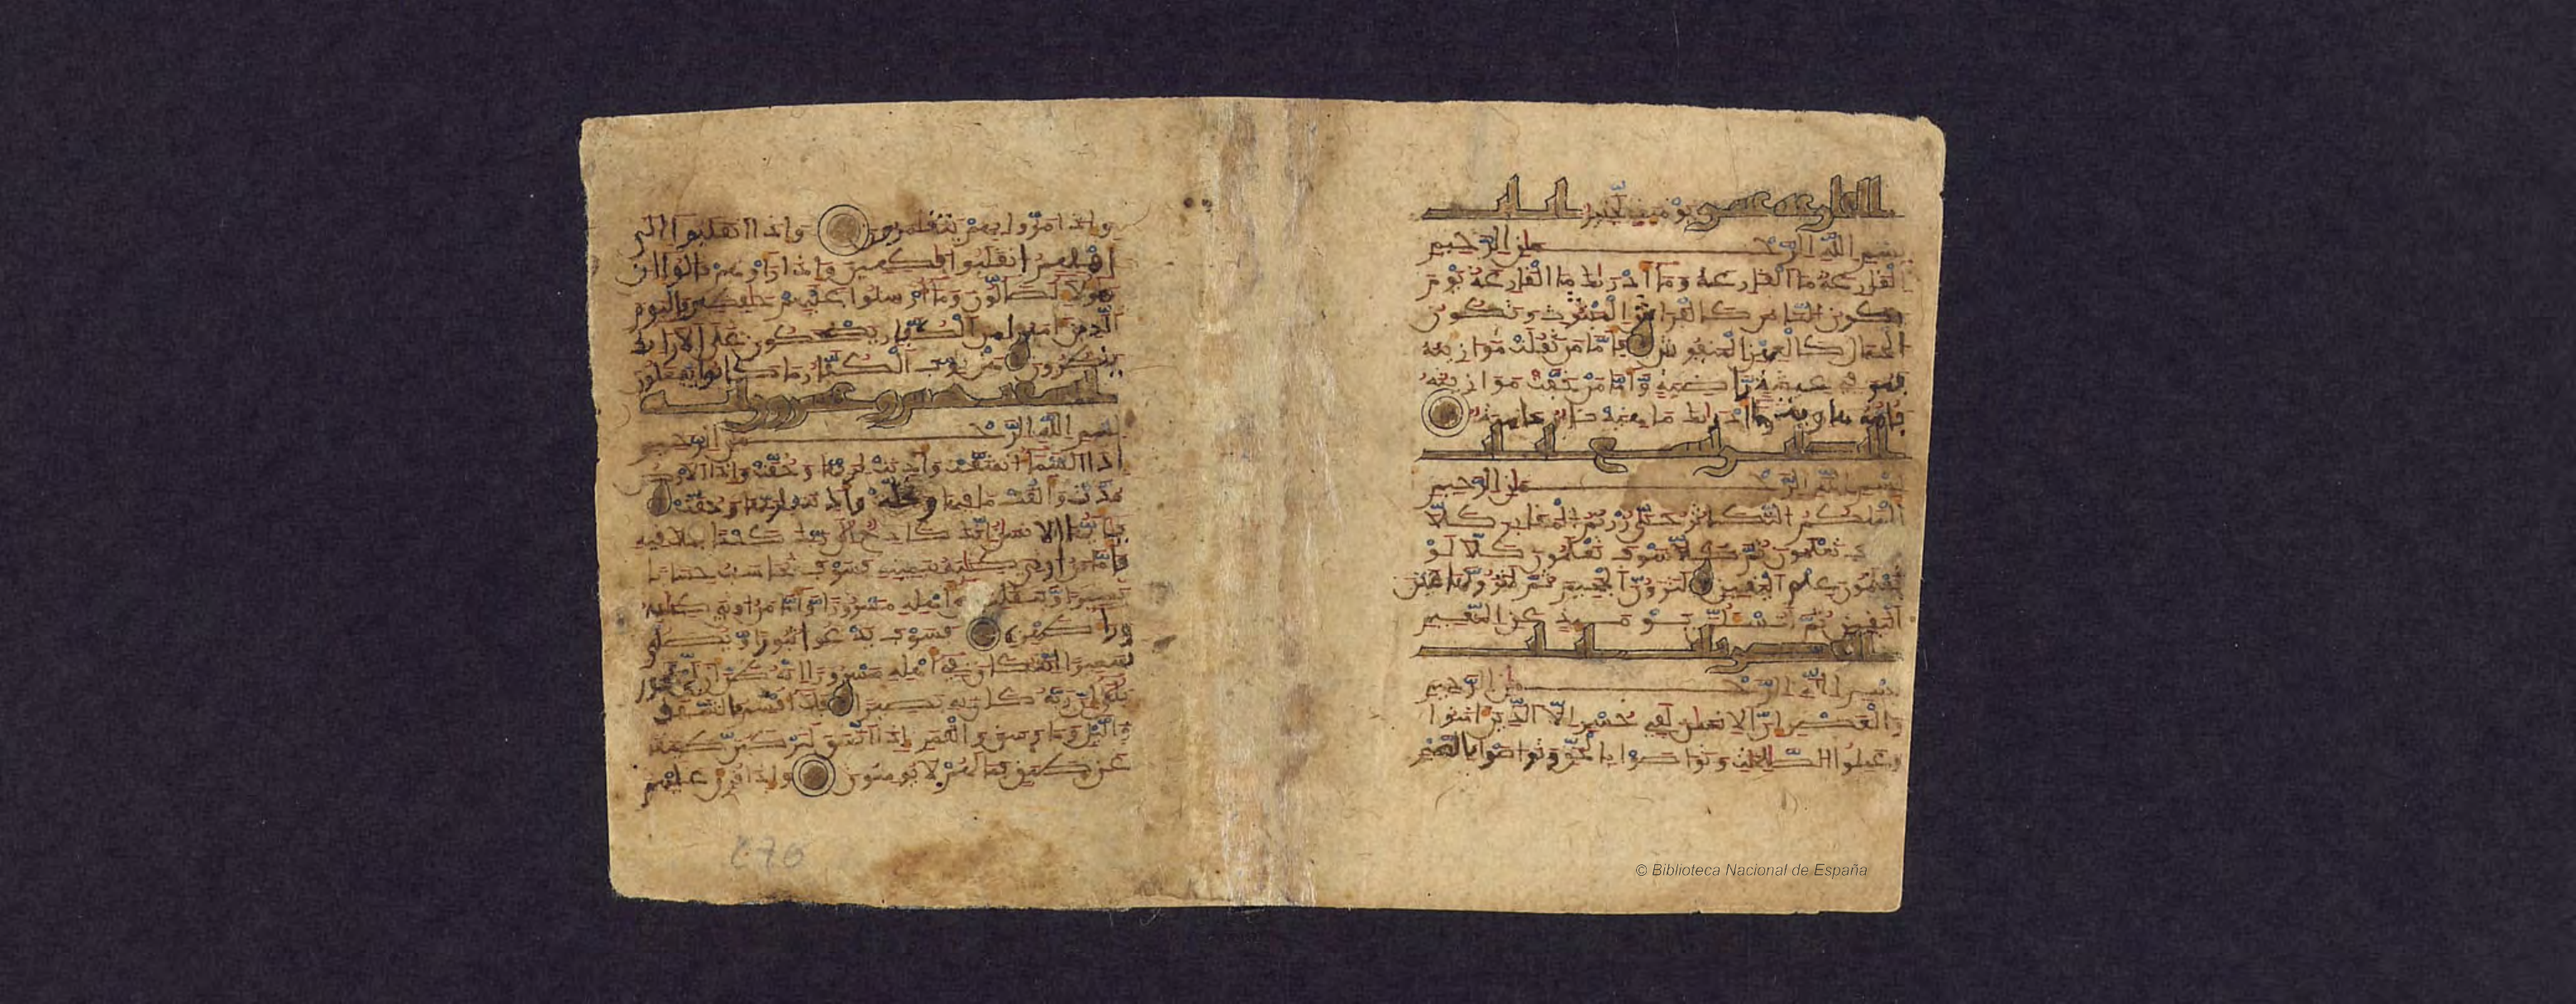 القارعة عشر يَوْمَئِذٍ لَّخَبِيرٌ ايات
بِسْمِ اللَّهِ الرَّحْمَنِ الرَّحِيمِ
الْقَارِعَةُ مَا الْقَارِعَةُ وَمَا أَدْرَيكَ مَا الْقَارِعَةُ يَوْمَ
يَكُونُ النَّاسُ كَالْفَرَاشِ الْمَبْثُوثِ وَتَكُونُ
الْجِبَالُ كَالْعِهْنِ الْمَنفُوشِ فَأَمَّا مَن ثَقُلَتْ مَوَازِينُهُ
فَهُوَ فِي عِيشَةٍ رَّاضِيَةٍ وَأَمَّا مَنْ خَفَّتْ مَوَازِينُهُ
فَأُمُّهُ هَاوِيَةٌ وَمَا أَدْرَيكَ مَا هِيَهْ نَارٌ حَامِيَةٌ
ايات
بِسْمِ اللَّهِ الرَّحْمَنِ الرَّحِيمِ
أَلْهَيكُمُ التَّكَاثُرُ حَتَّى زُرْتُمُ الْمَقَابِرَ كَلَّا
سَوْفَ تَعْلَمُونَ ثُمَّ كَلَّا سَوْفَ تَعْلَمُونَ كَلَّا لَوْ
تَعْلَمُونَ عِلْمَ الْيَقِينِ لَتَرَوُنَّ الْجَحِيمَ ثُمَّ لَتَرَوُنَّهَا عَيْنَ
الْيَقِينِ ثُمَّ لَتُسْئَلُنَّ يَوْمَئِذٍ عَنِ النَّعِيمِ
العصر ثلث ايات
بِسْمِ اللَّهِ الرَّحْمَنِ الرَّحِيمِ
وَالْعَصْرِ إِنَّ الْإِنسَنَ لَفِي خُسْرٍ إِلَّا الَّذِينَ ءَامَنُوا
وَعَمِلُوا الصَّلِحَتِ وَتَوَاصَوْا بِالْحَقِّ وَتَوَاصَوْا بِالصَّبْرِ
وَإِذَا مَرُّوا بِهِمْ يَتَغَامَزُونَ وَإِذَا انقَلَبُوا إِلَى
أَهْلِهِمُ انقَلَبُوا فَكِهِينَ وَإِذَا رَأَوْهُمْ قَالُوا إِنَّ
هَؤُلَاءِ لَضَالُّونَ وَمَا أُرْسِلُوا عَلَيْهِمْ حَفِظِينَ فَالْيَوْمَ
الَّذِينَ ءَامَنُوا مِنَ الْكُفَّارِ يَضْحَكُونَ عَلَى الْأَرَائِكِ
يَنظُرُونَ هَلْ ثُوِّبَ الْكُفَّارُ مَا كَانُوا يَفْعَلُونَ
انشقت خمس وعشرون اية
بِسْمِ اللَّهِ الرَّحْمَنِ الرَّحِيمِ
إِذَا السَّمَاءُ انشَقَّتْ وَأَذِنَتْ لِرَبِّهَا وَحُقَّتْ وَإِذَا الْأَرْضُ
مُدَّتْ وَأَلْقَتْ مَا فِيهَا وَتَخَلَّتْ وَأَذِنَتْ لِرَبِّهَا وَحُقَّتْ
يَأَيُّهَا الْإِنسَنُ إِنَّكَ كَادِحٌ إِلَى رَبِّكَ كَدْحًا فَمُلَقِيهِ
فَأَمَّا مَنْ أُوتِيَ كِتَبَهُ بِيَمِينِهِ فَسَوْفَ يُحَاسَبُ حِسَابًا
يَسِيرًا وَيَنقَلِبُ إِلَى أَهْلِهِ مَسْرُورًا وَأَمَّا مَنْ أُوتِيَ كِتَبَهُ
وَرَاءَ ظَهْرِهِ فَسَوْفَ يَدْعُوا ثُبُورًا وَيُصَلَّى
سَعِيرًا إِنَّهُ كَانَ فِي أَهْلِهِ مَسْرُورًا إِنَّهُ ظَنَّ أَن لَّن يَحُورَ
بَلَى إِنَّ رَبَّهُ كَانَ بِهِ بَصِيرًا فَلَا أُقْسِمُ بِالشَّفَقِ
وَالَّيْلِ وَمَا وَسَقَ وَالْقَمَرِ إِذَا اتَّسَقَ لَتَرْكَبُنَّ طَبَقًا
عَن طَبَقٍ فَمَا لَهُمْ لَا يُؤْمِنُونَ وَإِذَا قُرِئَ عَلَيْهِمُ
676
© Biblioteca Nacional de España